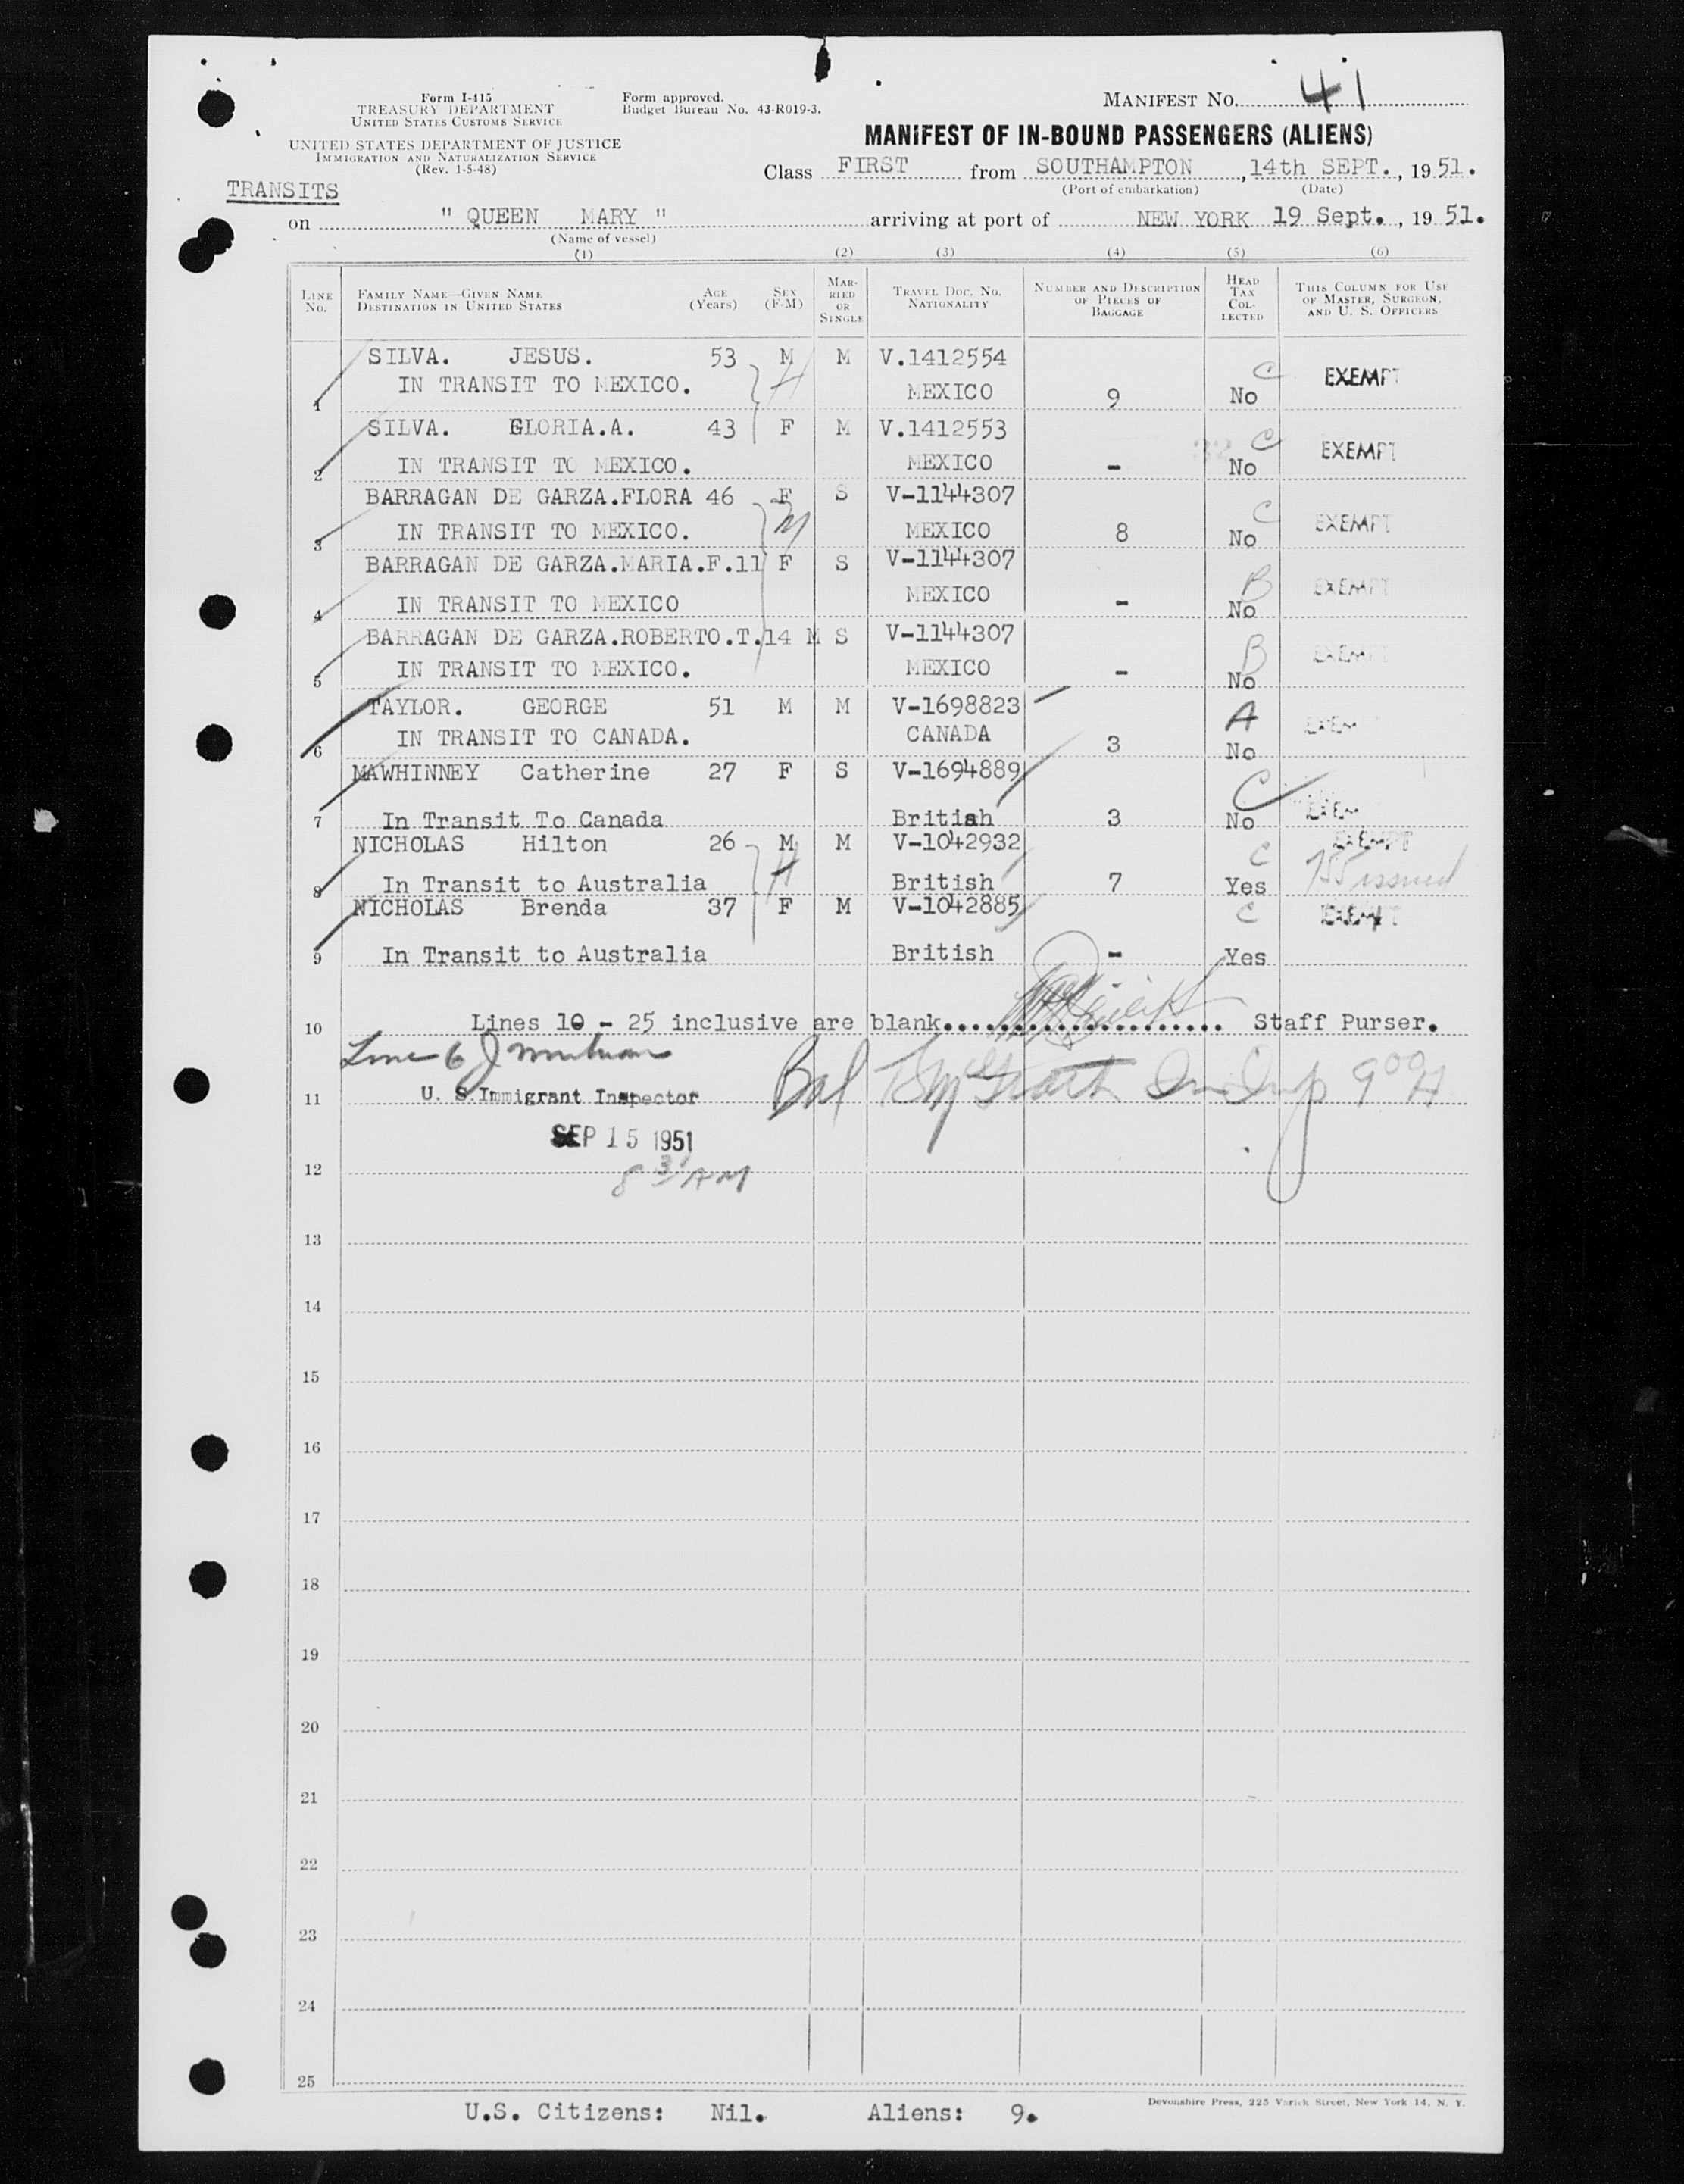 Form I-415
TREASURY DEPARTMENT
UNITED STATES CUSTOMS SERVICE
UNITED STATES DEPARTMENT OF JUSTICE
IMMIGRATION AND NATURALIZATION SERVICE
(Rev. 1-5-48)
Form approved.
Budget Bureau No. 43-R019-3.
MANIFEST No. 41
MANIFEST OF IN-BOUND PASSENGERS (ALIENS)
Class FIRST from SOUTHAMPTON, 14th SEPT., 1951.
(Port of embarkation) (Date)
TRANSITS
on " QUEEN MARY " arriving at port of NEW YORK 19 Sept., 1951.
(Name of vessel)
(1) (2) (3) (4) (5) (6)
LINE No. FAMILY NAME—GIVEN NAME DESTINATION IN UNITED STATES AGE (Years) SEX (F-M) MARRIED OR SINGLE TRAVEL DOC. NO. NATIONALITY NUMBER AND DESCRIPTION OF PIECES OF BAGGAGE HEAD TAX COLLECTED THIS COLUMN FOR USE OF MASTER, SURGEON, AND U. S. OFFICERS
SILVA. JESUS. 53 M M V.1412554 C EXEMPT
1 IN TRANSIT TO MEXICO. H MEXICO 9 No
SILVA. GLORIA.A. 43 F M V.1412553 C EXEMPT
2 IN TRANSIT TO MEXICO. MEXICO - No
BARRAGAN DE GARZA.FLORA 46 F S V-1144307 C EXEMPT
3 IN TRANSIT TO MEXICO. M MEXICO 8 No
BARRAGAN DE GARZA.MARIA.F.11 F S V-1144307 B EXEMPT
4 IN TRANSIT TO MEXICO MEXICO - No
BARRAGAN DE GARZA.ROBERTO.T.14 M S V-1144307 B EXEM
5 IN TRANSIT TO MEXICO. MEXICO - No
TAYLOR. GEORGE 51 M M V-1698823 A EXEM
6 IN TRANSIT TO CANADA. CANADA 3 No
MAWHINNEY Catherine 27 F S V-1694889 C
7 In Transit To Canada British 3 No EXEM
NICHOLAS Hilton 26 M M V-1042932 C EXEMPT
8 In Transit to Australia H British 7 Yes issued
NICHOLAS Brenda 37 F M V-1042885 C EXEMPT
9 In Transit to Australia British - Yes
10 Lines 10 - 25 inclusive are blank...................... Staff Purser.
Line 6 J
11 U. S. Immigrant Inspector Bal McGrath 9 00 A
SEP 15 1951
12 8 30 AM
13
14
15
16
17
18
19
20
21
22
23
24
25
Devonshire Press, 225 Varick Street, New York 14, N. Y.
U.S. Citizens: Nil. Aliens: 9.